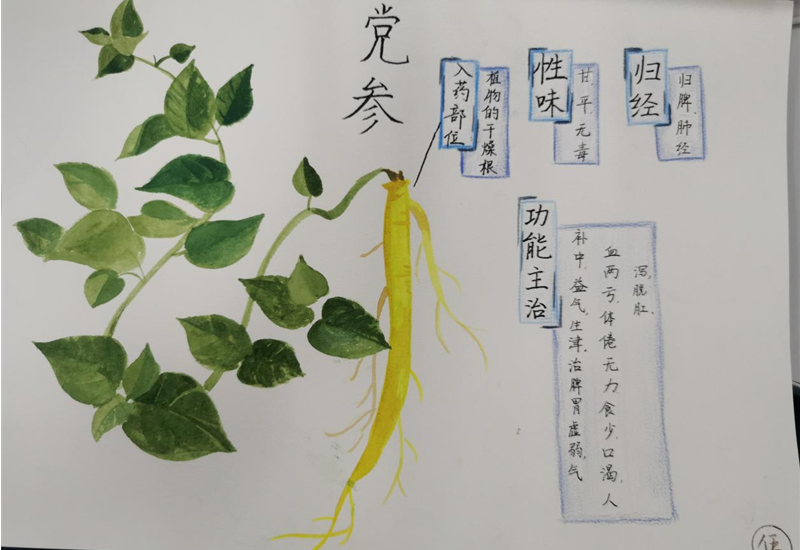 党参
入药部位
植物的干燥根
性味
甘、平、无毒
归经
归脾、肺经
功能主治
补中、益气、生津、治脾胃虚弱、气
血两亏、体倦无力食少、口渴、人
泻、脱肛、